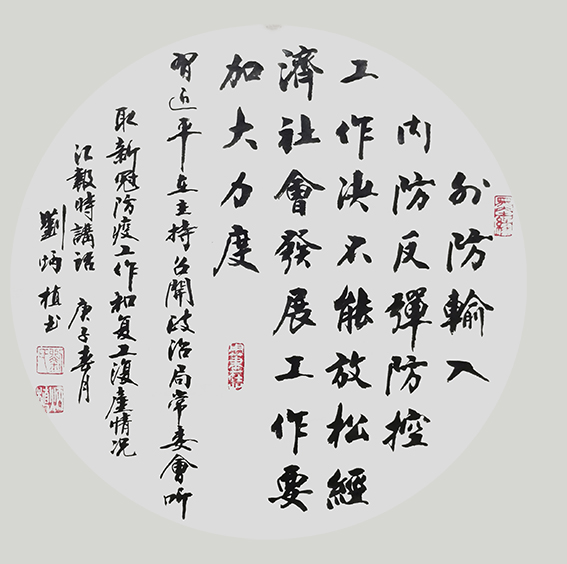 外防輸入
内防反彈防控
工作决不能放松經
濟社會發展工作要
加大力度
習近平在主持召開政治局常委會听
取新冠防疫工作和复工復產情况
汇報時講話 庚子春月
劉炳植书